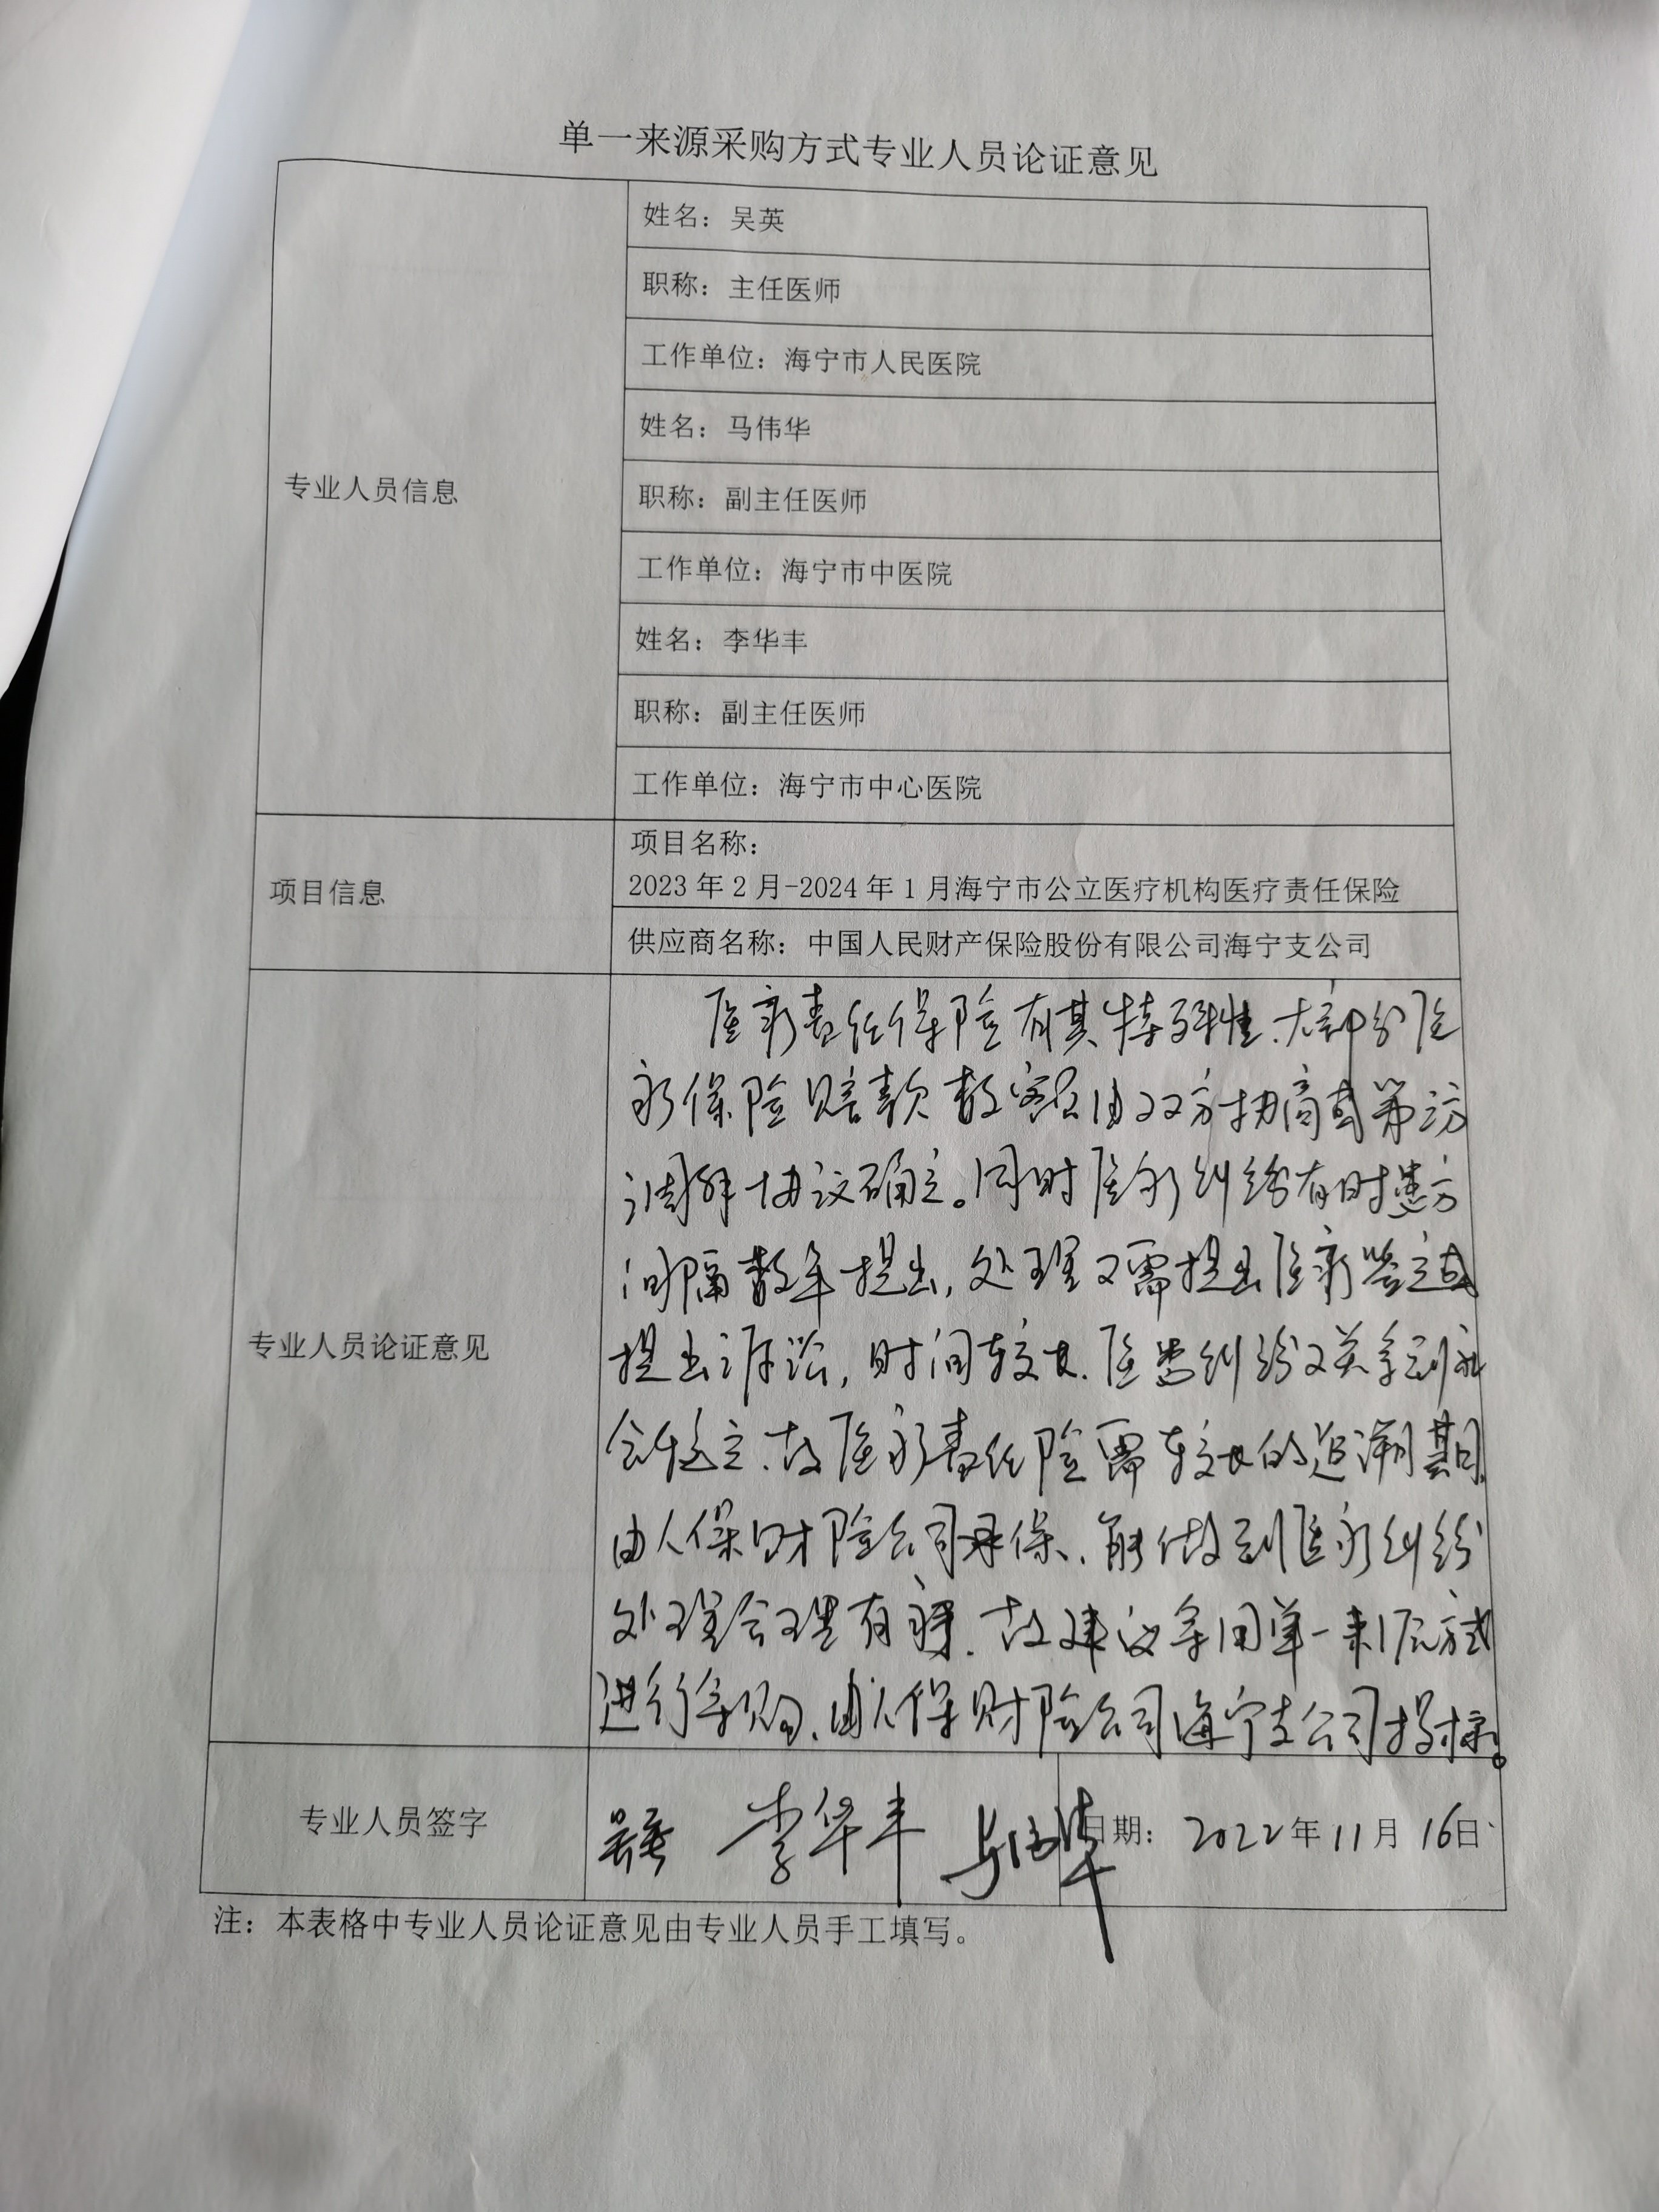 单一来源采购方式专业人员论证意见
专业人员信息
姓名：吴英
职称：主任医师
工作单位：海宁市人民医院
姓名：马伟华
职称：副主任医师
工作单位：海宁市中医院
姓名：李华丰
职称：副主任医师
工作单位：海宁市中心医院
项目信息
项目名称：
2023年2月-2024年1月海宁市公立医疗机构医疗责任保险
供应商名称：中国人民财产保险股份有限公司海宁支公司
专业人员论证意见
医疗责任保险有其特殊性、大部分医
疗保险赔款数额由双方协商或第三方
调解协议确定。同时医疗纠纷有时患方
间隔数年提出，处理又需提出医疗鉴定或
提出诉讼，时间较长、医患纠纷又关系到社
会稳定、故医疗责任险需较长的追溯期、
由人保财险公司承保、能做到医疗纠纷
处理合理有序、故建议采用单一来源方式
进行采购、由人保财险公司海宁支公司投标。
专业人员签字
吴英 李华丰 马伟华 日期：2022年11月16日
注：本表格中专业人员论证意见由专业人员手工填写。